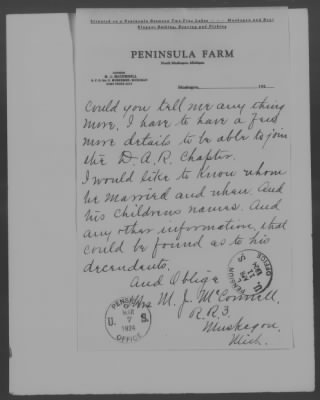 Situated on a Peninsula Between Two Fine Lakes
Elegant Bathing, Boating and Fishing
PENINSULA FARM
North Muskegon, Michigan
M. J. McCONNELL
Muskegon, 192
Could you tell me any thing
more. I have to have a few
more details to be able to join
the D.A.R. Chapter.
I would like to know whom
he married and when. And
his childrens names. And
any other information, that
could be found as to his
decendents.
And Oblige
Mrs M. J. McConnell,
R.R.3.
Muskegon,
Mich.
PENSION
U. MAR 7 1924 S.
OFFICE
PENSION
U. S.
MAR 11
OFFICE